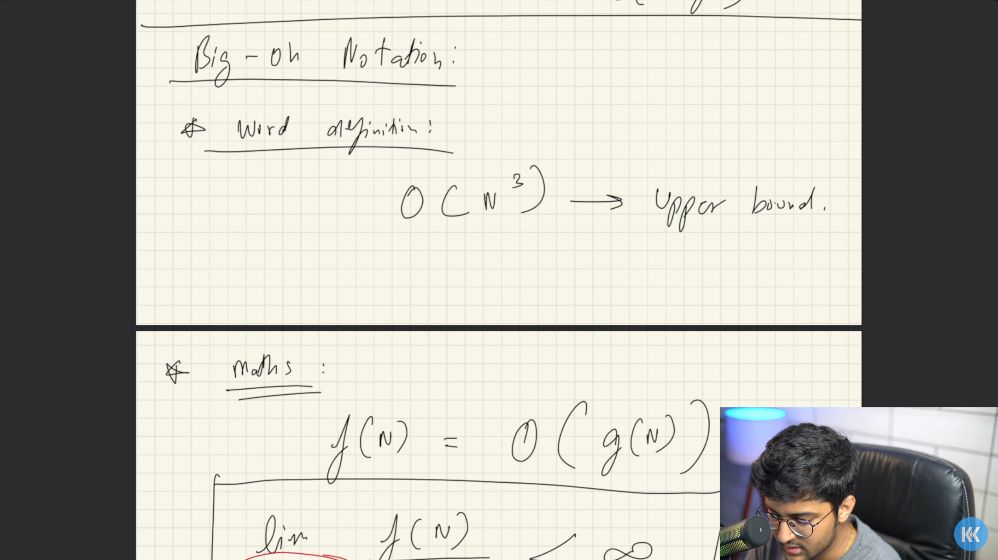 Big-oh Notation:
* Word definition:
O(N³) → Upper bound.
* Maths :
f(N) = O(g(N))
lim f(N) < ∞